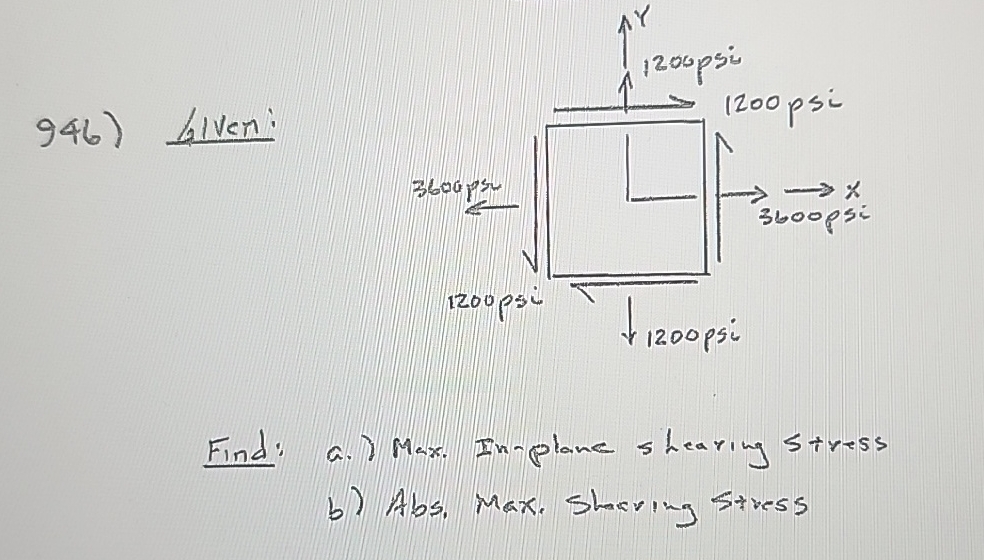 Y
1200psi
946) Given:
1200psi
3600psi
X
3600psi
1200psi
1200psi
Find: a.) Max. In-plane shearing Stress
b) Abs. Max. Shearing Stress